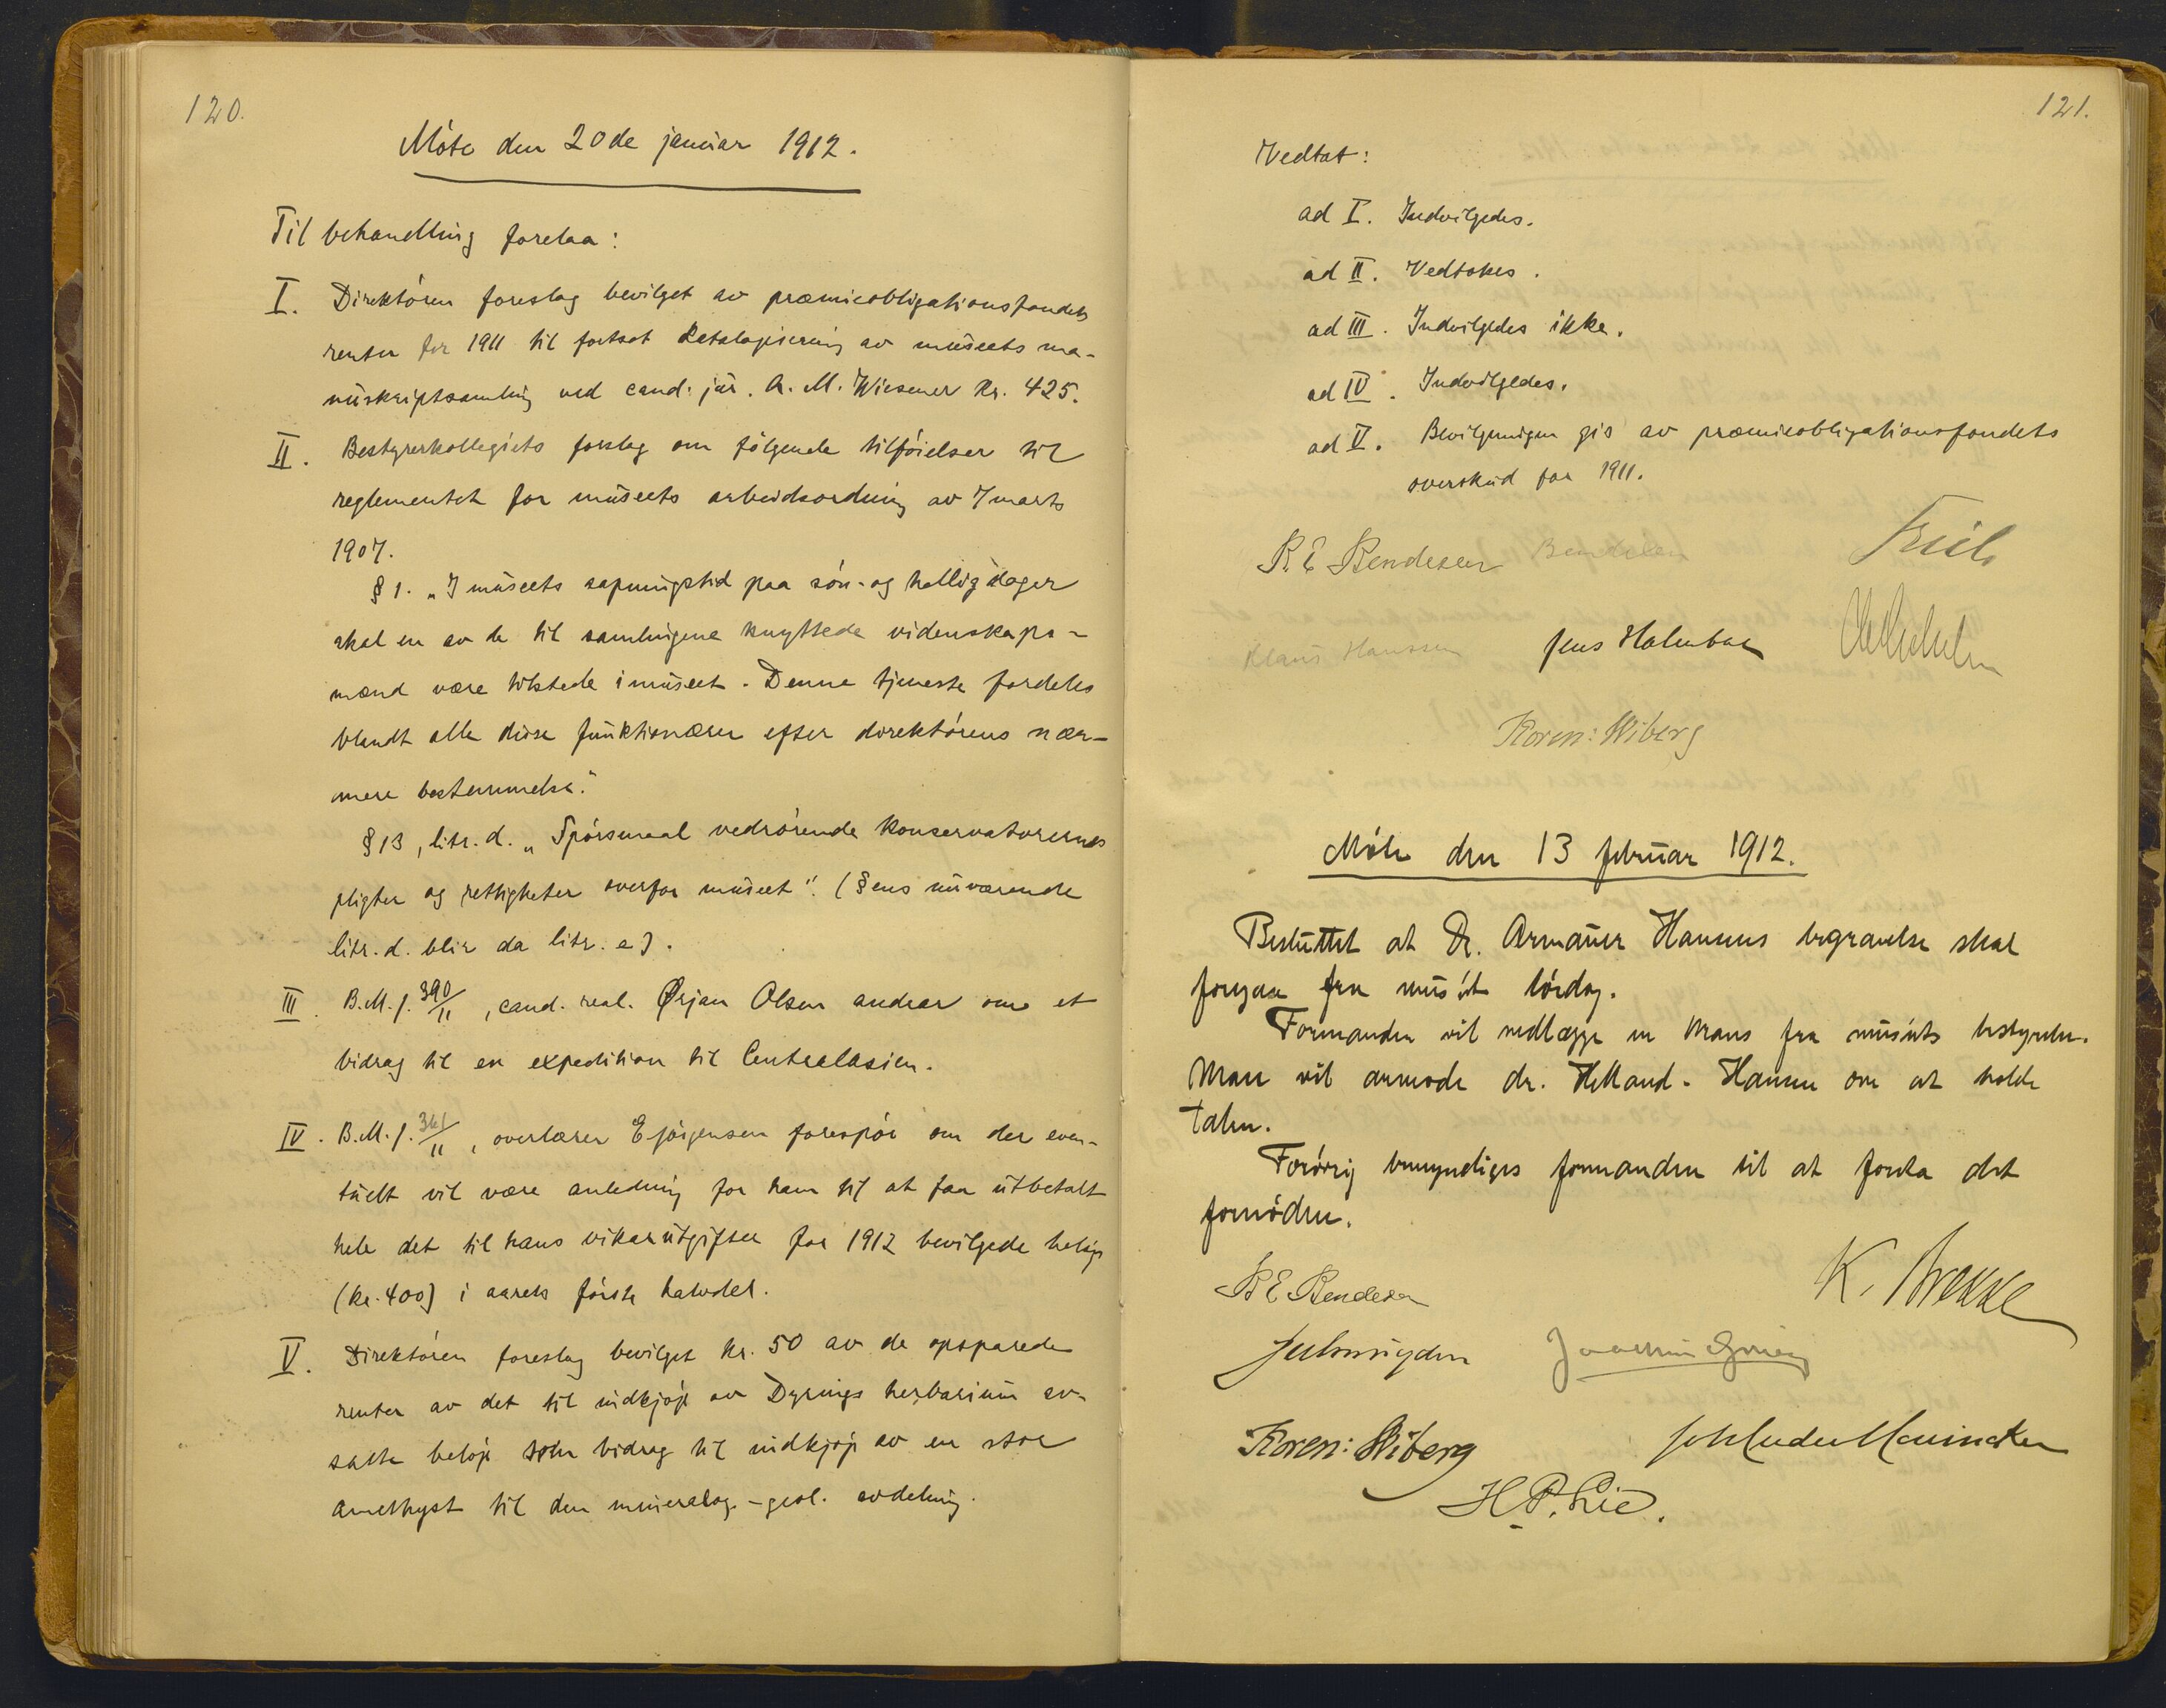 120.
Møte den 20de januar 1912.
Til behandling forelaa:
I. Direktøren foreslog bevilget av præmieobligationsfondets
renter for 1911 til fortsat katalogisering av museets ma-
nuskriptsamling ved cand. jur. A. M. Wiesener kr. 425.
II. Bestyrerkollegiets forslag om følgende tilføielser til
reglementet for museets arbeidsordning av 7 marts
1907.
§ 1. „I museets aapningstid paa søn- og helligdager
skal en av de til samlingene knyttede videnskaps-
mænd være tilstede i museet. Denne tjeneste fordeles
blandt alle disse funktionærer efter direktørens nær-
mere bestemmelse."
§ 13, litr. d. „Spørsmaal vedrørende konservatorernes
pligter og rettigheter overfor museet". (§ens nuværende
litr. d. blir da litr. e).
III. B.M.j. 390/11, cand. real. Ørjan Olsen andrar om et
bidrag til en expedition til Centralasien.
IV. B.M.j. 361/11, overlærer E Jørgensen forespør om der even-
tuelt vil være anledning for ham til at faa utbetalt
hele det til hans vikarutgifter for 1912 bevilgede beløp
(kr. 400) i aarets første halvdel.
V. Direktøren foreslog bevilget kr. 50 av de opsparede
renter av det til indkjøp av Dyrings herbarium av-
satte beløp som bidrag til indkjøp av en stor
amethyst til den mineralog.-geol. avdeling.
121.
Vedtat:
ad I. Indvilgedes.
ad II. Vedtokes.
ad III. Indvilgedes ikke.
ad IV. Indvilgedes.
ad V. Bevilgningen gis av præmieobligationsfondets
overskud for 1911.
B. E. Bendixen Bendixen Friele
Klaus Hanssen Jens Holmboe
Koren-Wiberg
Møte den 13 februar 1912.
Besluttet at Dr. Armauer Hansens begravelse skal
foregaa fra museet lørdag.
Formanden vil nedlægge en krans fra museets bestyrelse.
Man vil anmode dr. Helland-Hansen om at holde
talen.
Forøvrig bemyndiges formanden til at foreta det
fornødne.
B E Bendixen K. Brekke
Joachim Grieg
Koren-Wiberg
H. P. Lie.